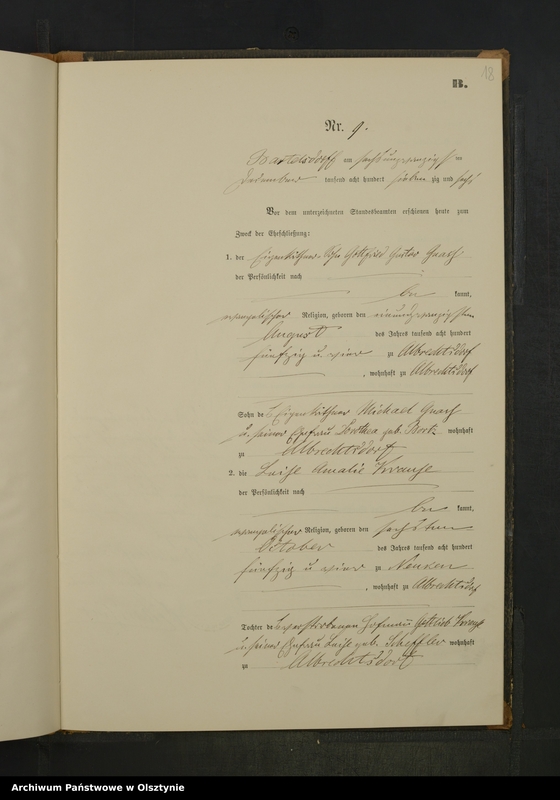 18
B.
Nr. 9.
Bartelsdorff am sechsundzwanzigsten
Dezember tausend acht hundert sieben zig und sechs
Vor dem unterzeichneten Standesbeamten erschienen heute zum
Zweck der Eheschließung:
1. der Eigenkäthner-Sohn Gottfried Gustav
der Persönlichkeit nach
be kannt,
evangelischer Religion, geboren den
August des Jahres tausend acht hundert
fünfzig u vier zu Albrechtsdorf
, wohnhaft zu Albrechtsdorf
Sohn des Eigenkäthner Michael
u. seiner Ehefrau Dorothea geb. wohnhaft
zu Albrechtsdorf
2. die Luise Amalie Krause
der Persönlichkeit nach
be kannt,
evangelischer Religion, geboren den sechsten
October des Jahres tausend acht hundert
fünfzig u vier zu Neuken
, wohnhaft zu Albrechtsdorf
Tochter des verstorbenen Hofmann Gottlieb Krause
u seiner Ehefrau Luise geb. Scheffler wohnhaft
zu Albrechtsdorf
Archiwum Państwowe w Olsztynie